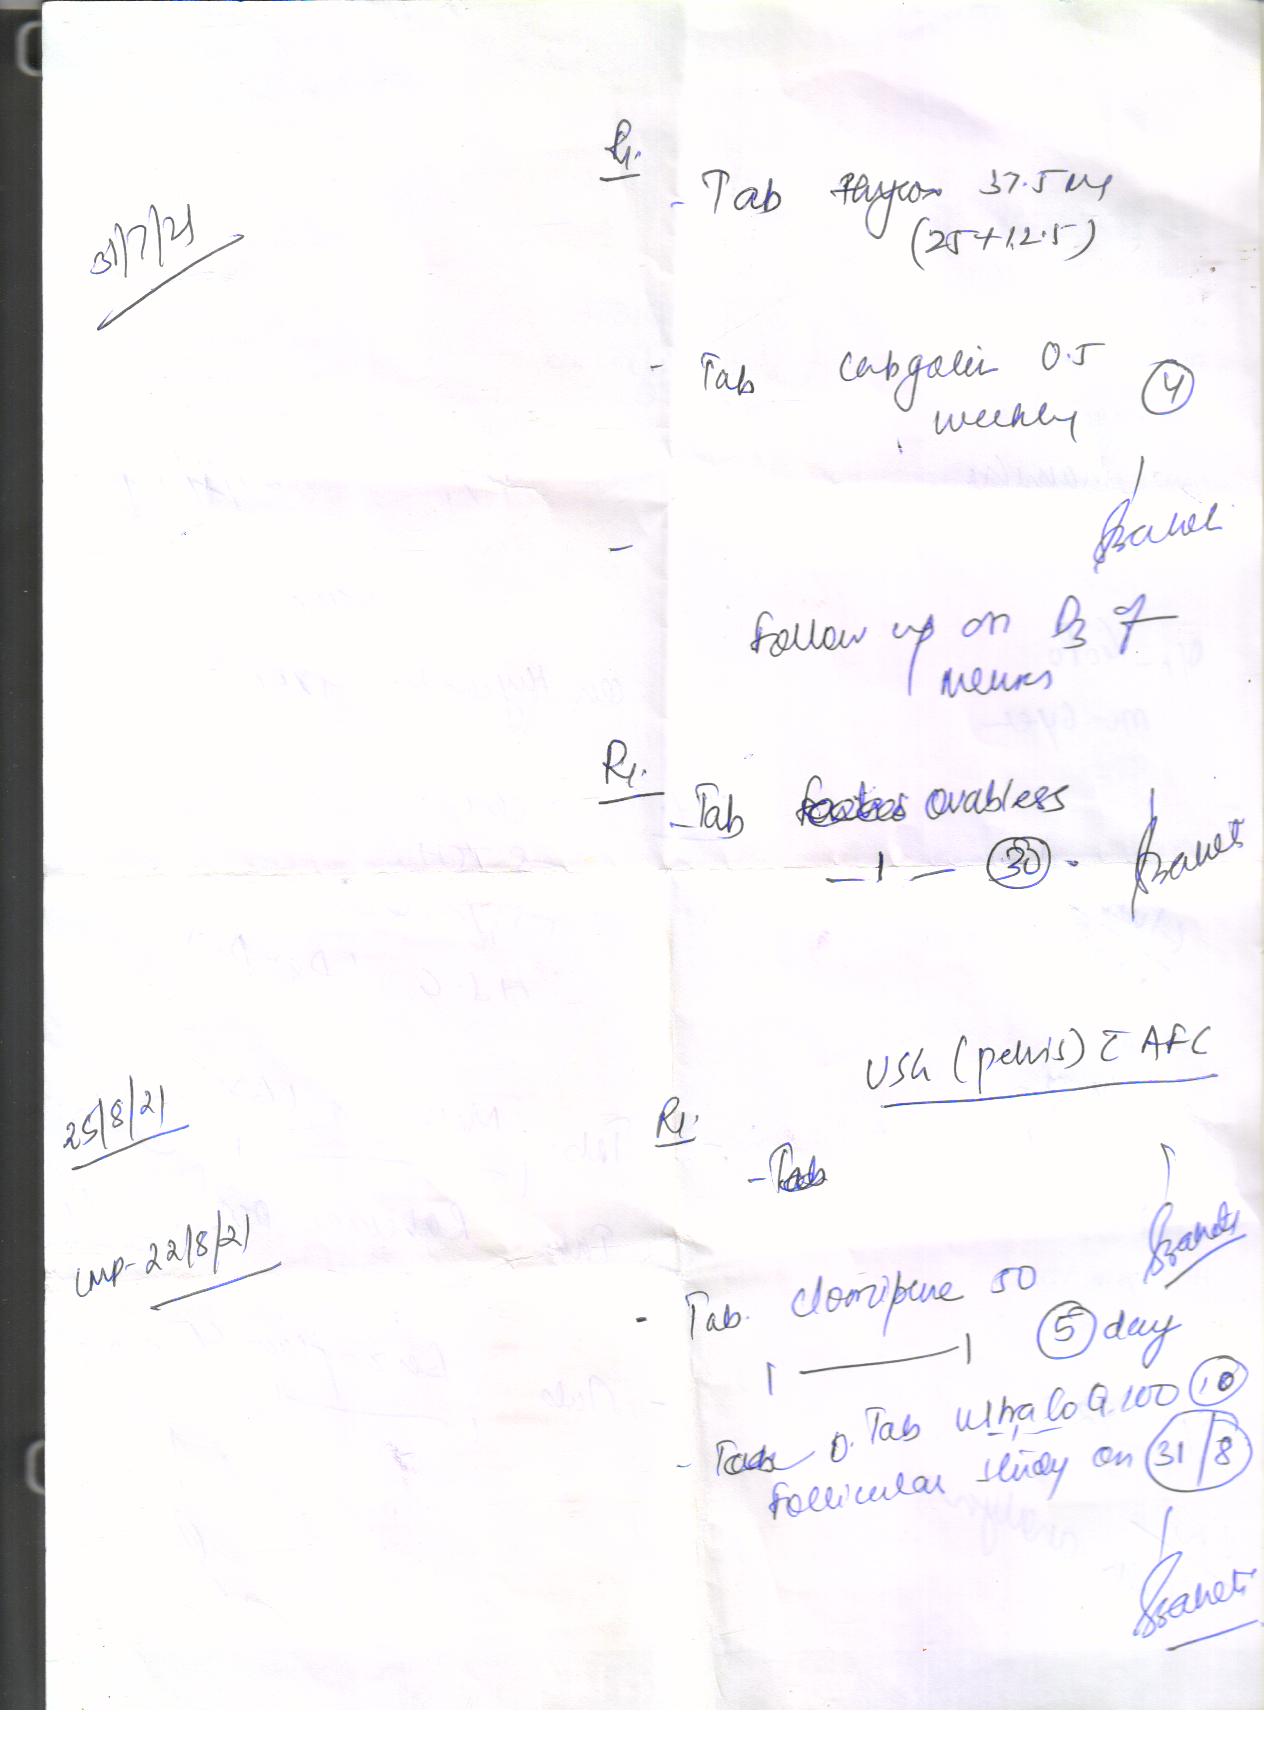 31/7/21
Rx.
- Tab Thyrox 37.5 mg
(25+12.5)
- Tab Cabgolin 0.5
weekly (4)
-
Follow up on D3 of
menses
Rx.
- Tab ovabless
— 1 — (30).
USG (pelvis) c̄ AFC
25/8/21
Rx.
- Tab
LMP- 22/8/21
- Tab. Clomipure 50
1 — 1 (5) day
- Tab Ultra CoQ 100 (10)
Follicular study on (31/8)